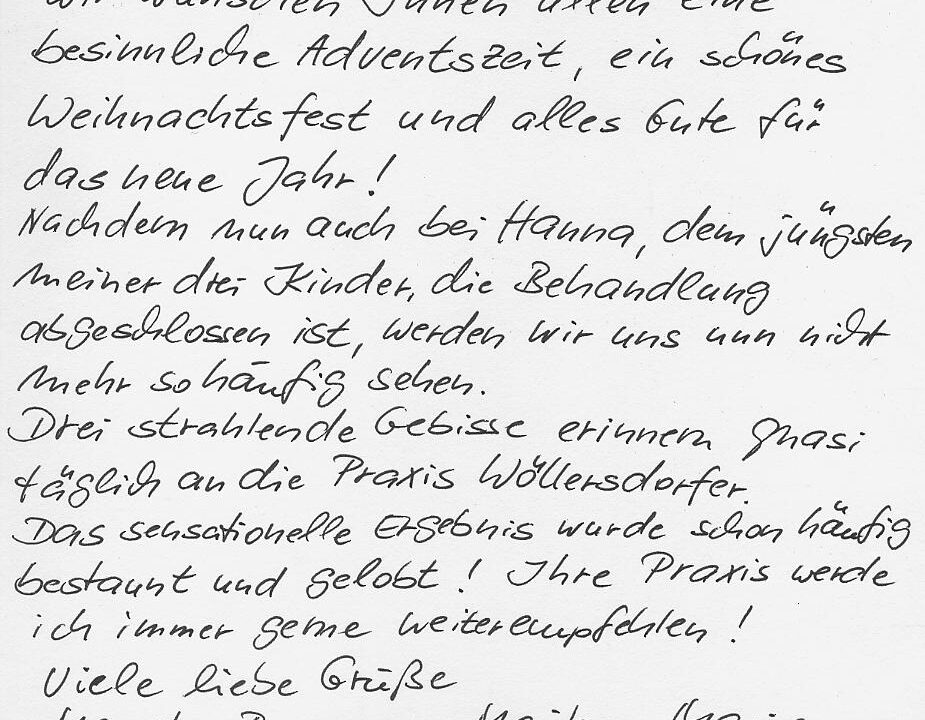 wir wünschen Ihnen allen eine
besinnliche Adventszeit, ein schönes
Weihnachtsfest und alles Gute für
das neue Jahr!
Nachdem nun auch bei Hanna, dem jüngsten
meiner drei Kinder, die Behandlung
abgeschlossen ist, werden wir uns nun nicht
mehr so häufig sehen.
Drei strahlende Gebisse erinnern quasi
täglich an die Praxis Wöllersdorfer.
Das sensationelle Ergebnis wurde schon häufig
bestaunt und gelobt! Ihre Praxis werde
ich immer gerne weiterempfehlen!
Viele liebe Grüße